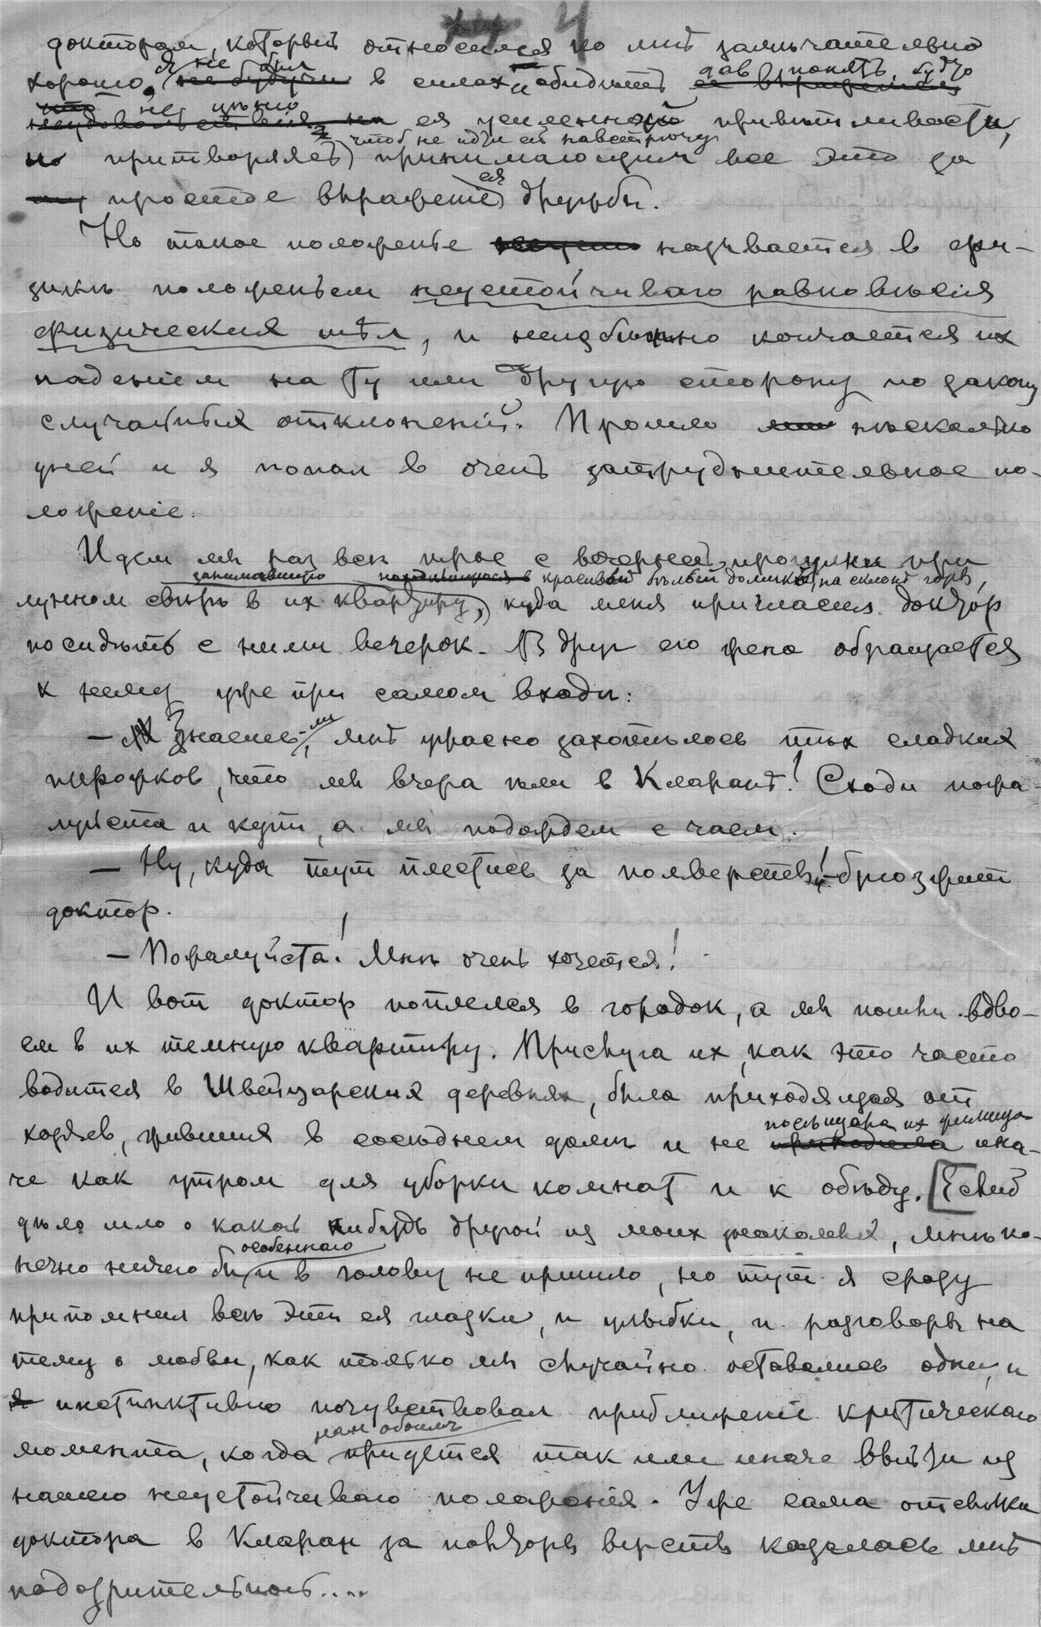 4
докторам, который относился ко мнѣ замѣчательно
хорошо, я не был в силах и обидѣть дав понять, будто
не цѣню ея усиленной привѣтливости,
и притворялся (чтоб не идти ей навстрѣчу) принимающим все это за
простое выраженіе ея дружбы.
Но такое положенье называется в фи-
зикѣ положеньем неустойчиваго равновѣсія
физических тѣл, и неизбѣжно кончается их
паденіем на ту или другую сторону по закону
случайных отклоненій. Прошло нѣсколько
дней и я попал в очень затруднительное по-
ложеніе.
Идем мы раз всѣ трое с вечерней прогулки при
лунном свѣтѣ в их квартиру, занимавшую красивый бѣлый домик на склонѣ горы,
куда меня пригласил доктор
посидѣть с ними вечерок. Вдруг его жена обращается
к нему уже при самом входѣ:
— Знаешь-ли, мнѣ ужасно захотѣлось тѣх сладких
пирожков, что мы вчера ѣли в Кларанѣ! Сходи пожа-
луйста и купи, а мы подождем с чаем.
— Ну, куда тут плестись за полверсты! — брюзжит
доктор.
— Пожалуйста! Мнѣ очень хочется!
И вот доктор поплелся в городок, а мы пошли вдво-
ем в их темную квартиру. Прислуга их, как это часто
водится в Швейцарских деревнях, была приходящая от
хозяев, живших в сосѣднем домѣ и не посѣщала их жилища ина-
че как утром для уборки комнат и к обѣду. [Если б
дѣло шло о какой нибудь другой из моих знакомых, мнѣ ко-
нечно ничего бы особеннаго и в голову не пришло, но тут я сразу
припомнил всѣ эти ея глазки, и улыбки, и разговоры на
тему о любви, как только мы случайно оставались одни, и
инстинктивно почувствовал приближеніе критическаго
момента, когда нам обоим придется так или иначе выйти из
нашего неустойчиваго положенія. Уже сама отсылка
доктора в Кларан за полторы версты казалась мнѣ
подозрительной....